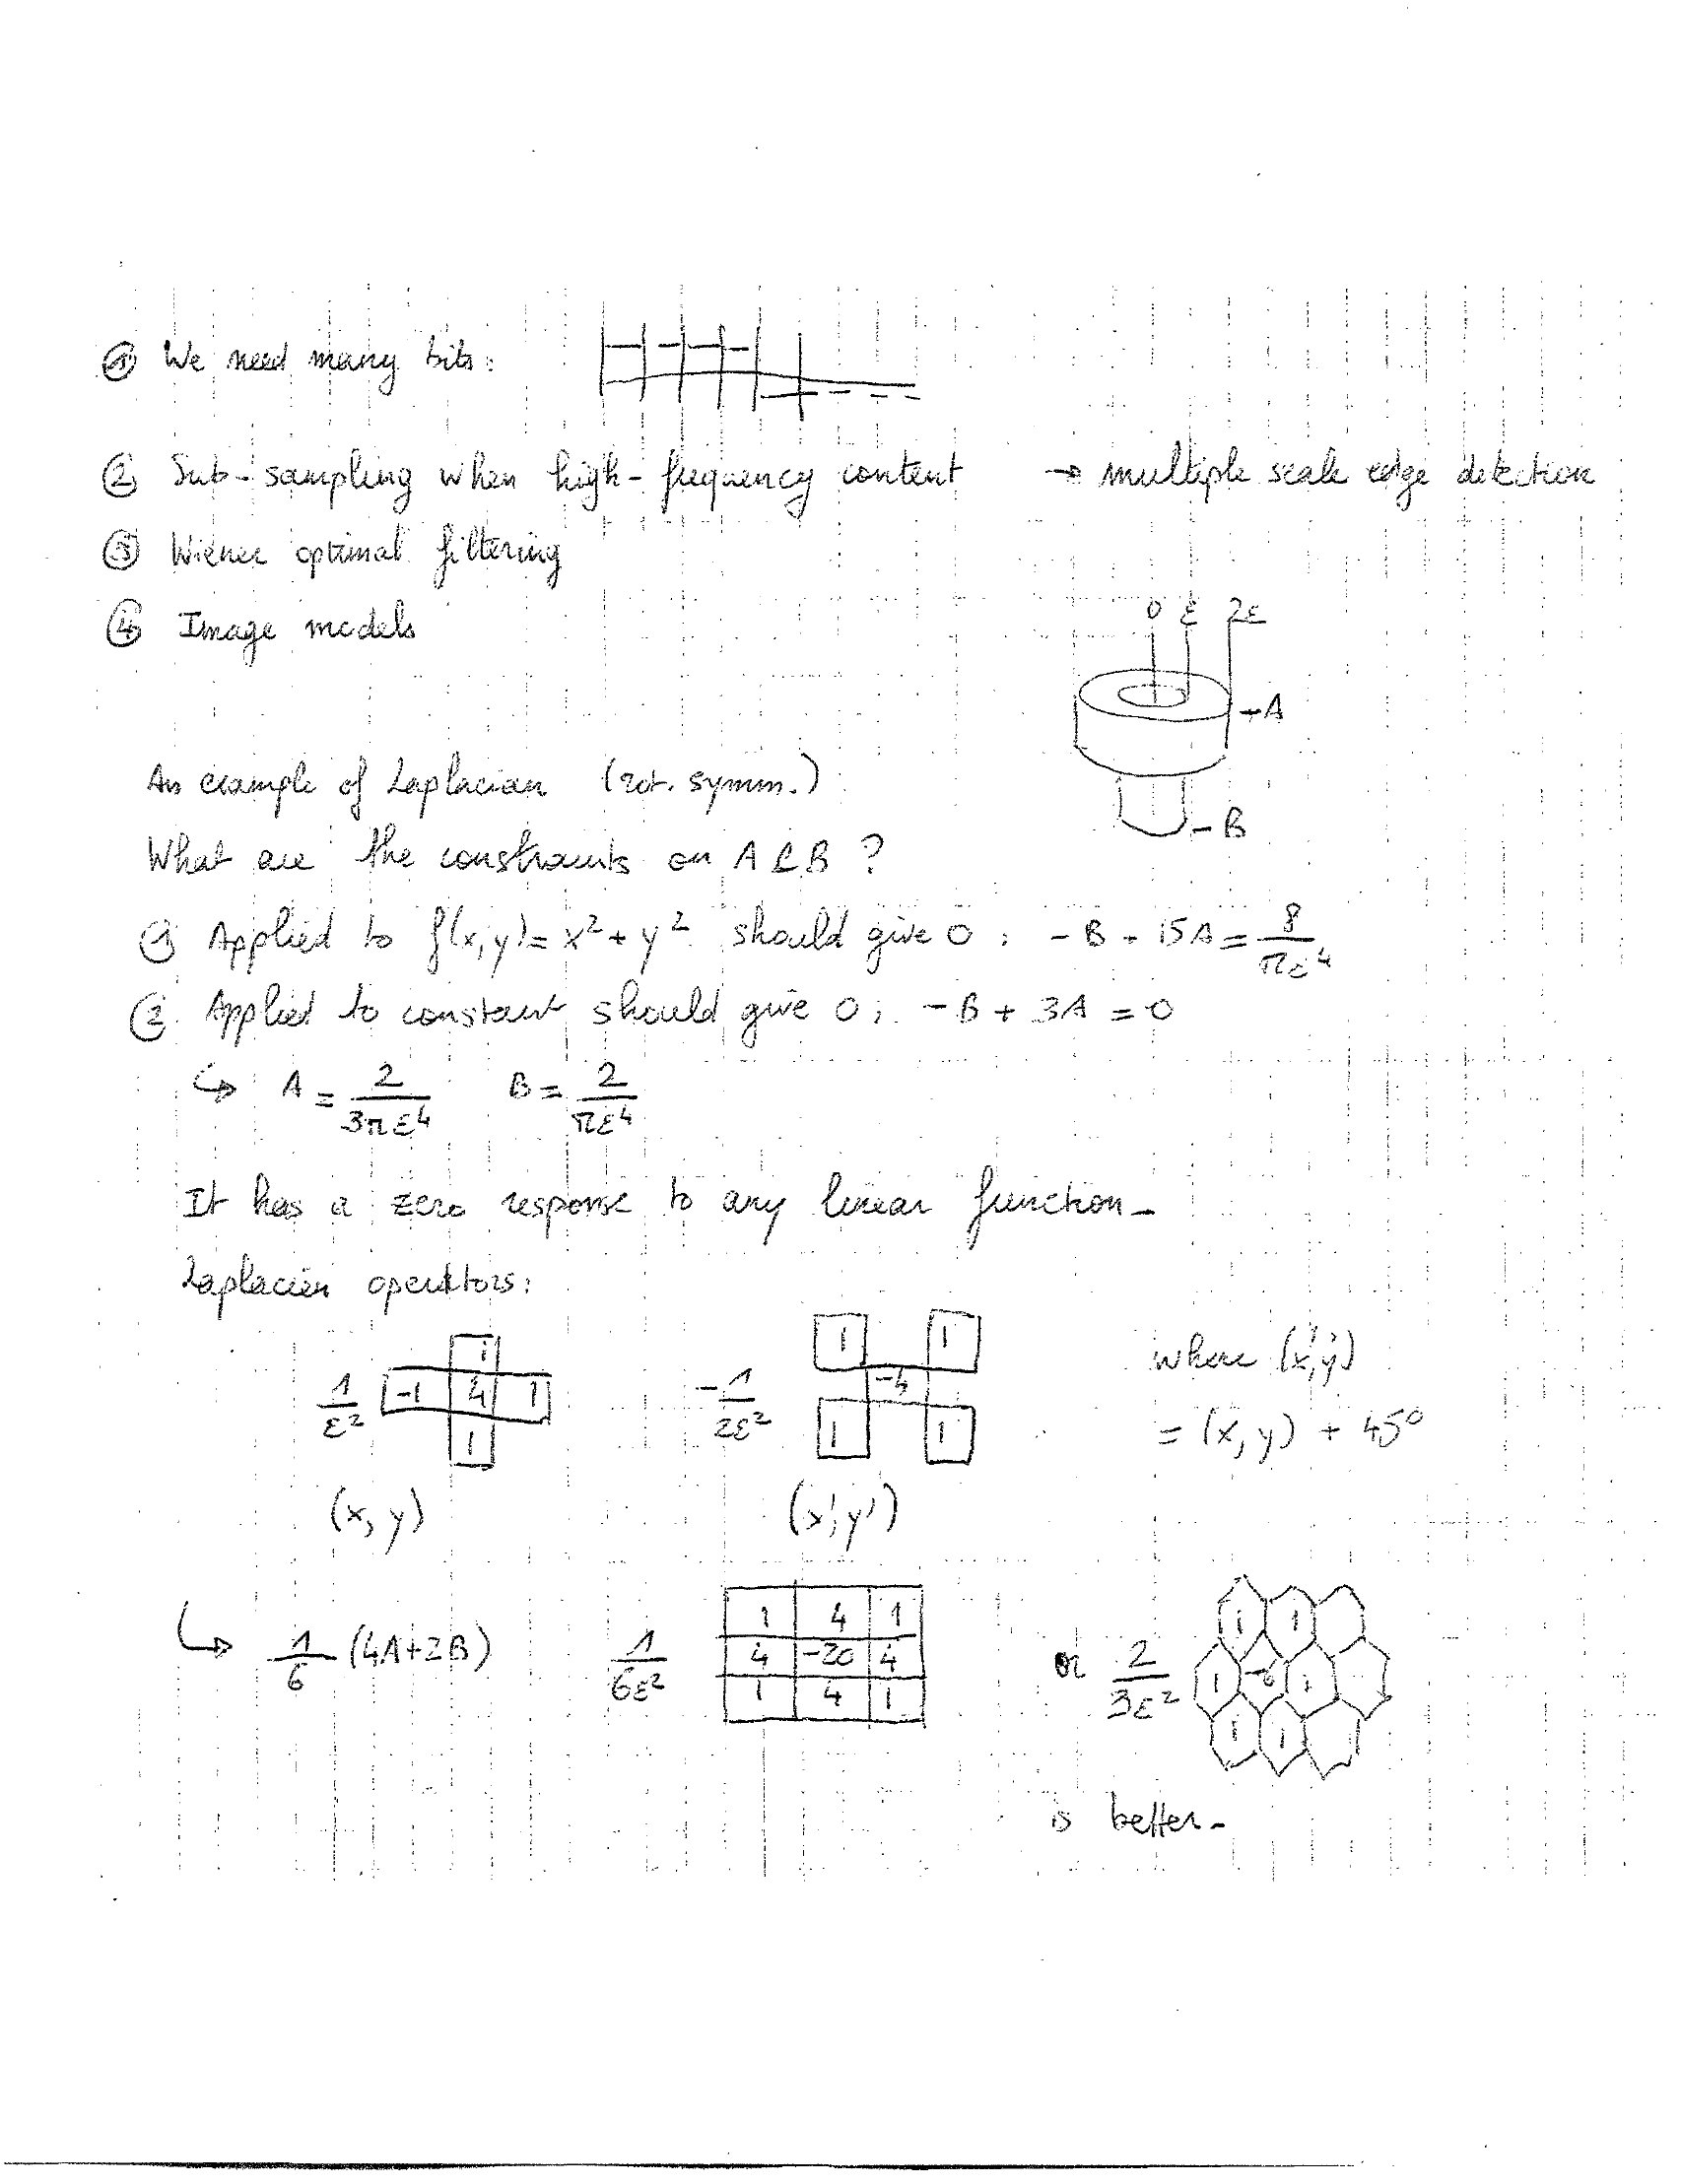 ① We need many bits:
② Sub-sampling when high-frequency content → multiple scale edge detection
③ Wiener optimal filtering
④ Image models
0 ε 2ε
+A
-B
An example of Laplacian (rot. symm.)
What are the constraints on A & B ?
① Applied to f(x,y)= x² + y² should give 0 : - B - 15A = 8/(πε⁴)
② Applied to constant should give 0 ; - B + 3A = 0
↳ A = 2/(3πε⁴) B = 2/(πε⁴)
It has a zero response to any linear function -
Laplacian operators:
1/ε² 1 -1 4 1 1
-1/(2ε²) 1 1 -4 1 1
where (x',y')
= (x,y) + 45°
(x, y) (x', y')
↳ 1/6 (4A+2B) 1/(6ε²)
1 4 1
4 -20 4
1 4 1
or 2/(3ε²)
1 1
1 -6 1
1 1
is better -